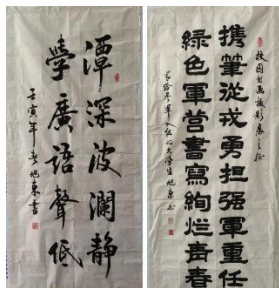 潭深波瀾静
學廣語聲低
壬寅年
携筆從戎勇担强軍重任
綠色軍营書寫絢烂青春